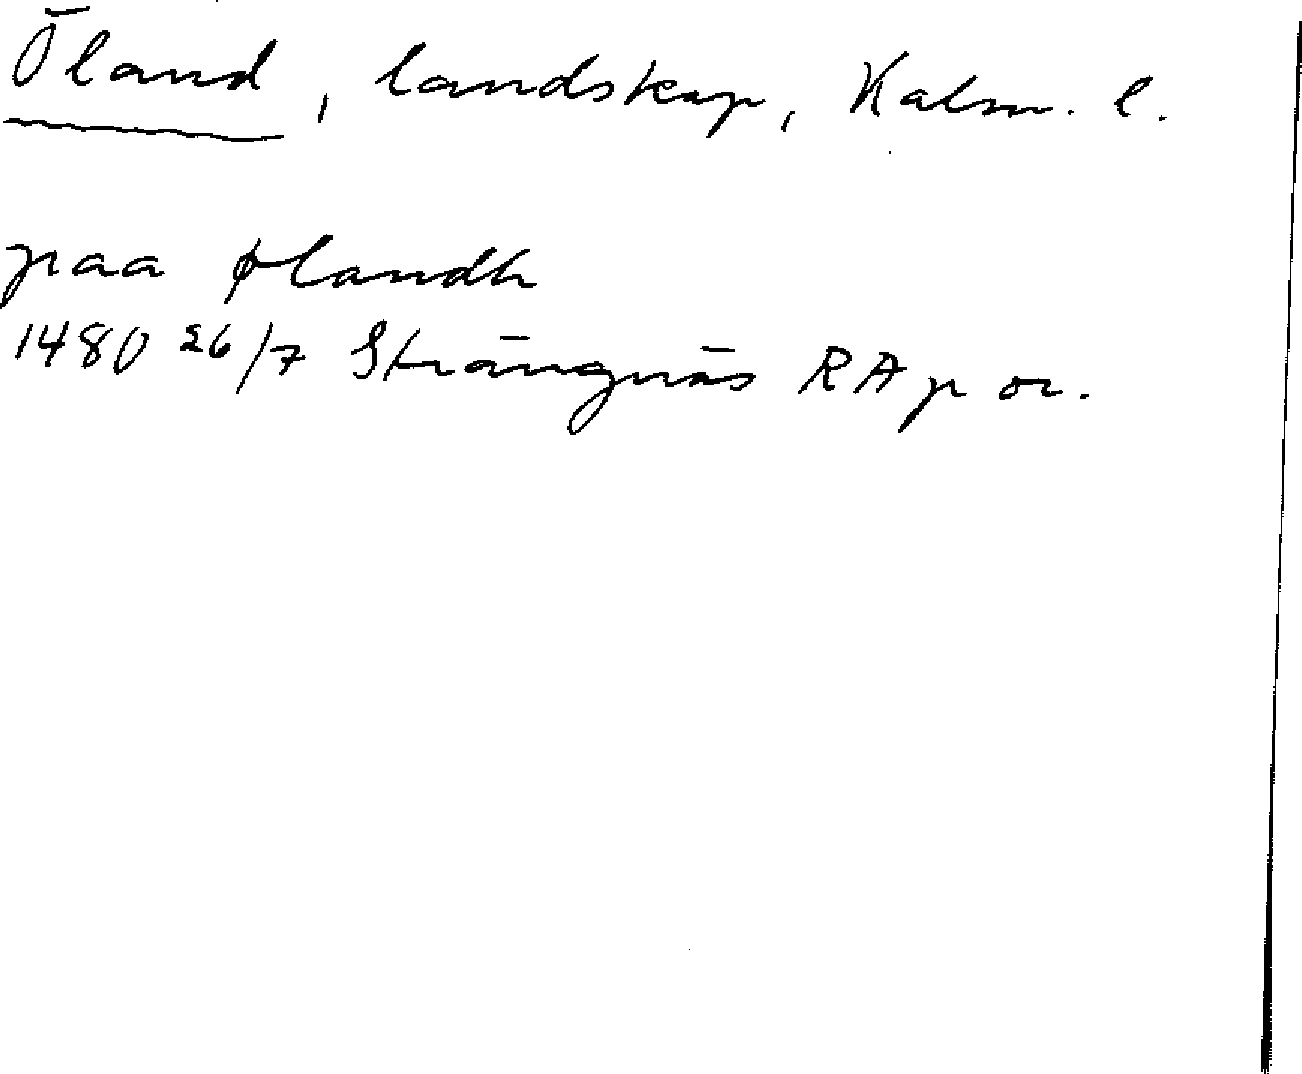 Öland, landskap, Kalm. l.
paa ølandh
1480 26/7 Strängnäs RA p or.